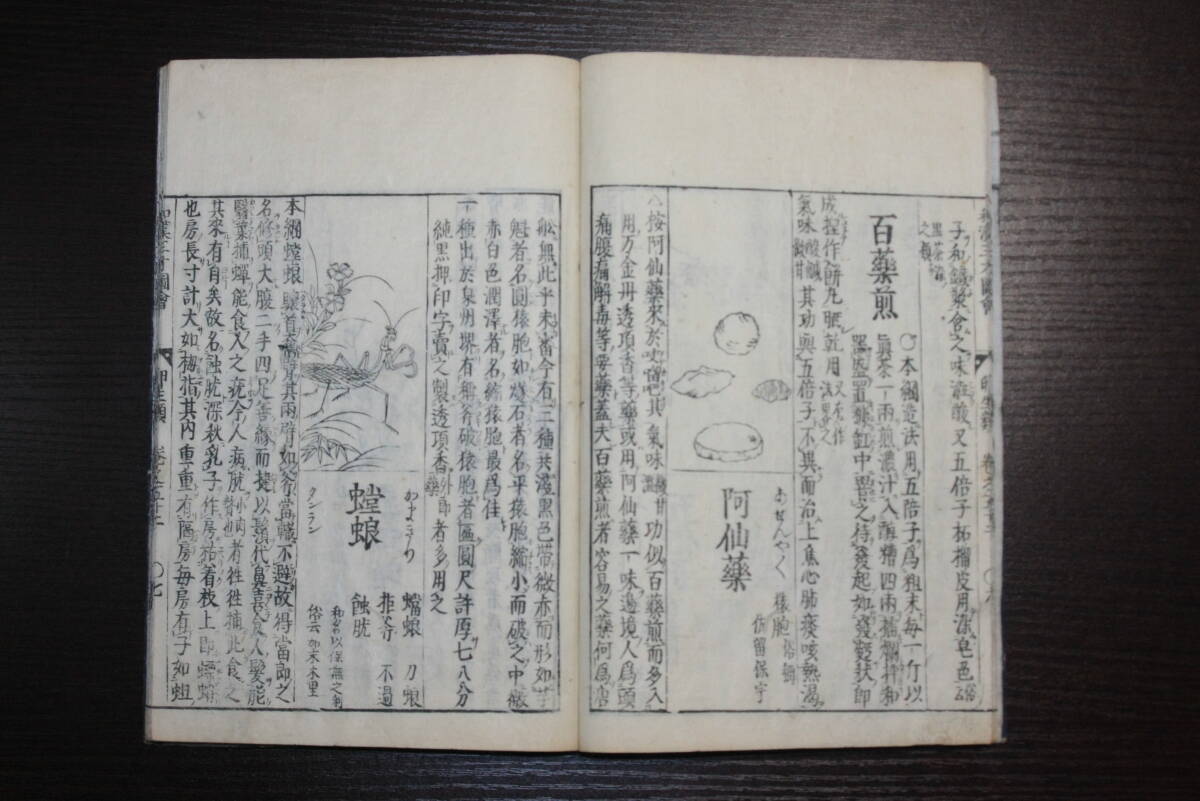 子和鹽麥食之味澁酸又五倍子柘榴皮用染皂色
百藥煎
○本綱造法用五陪子爲粗末每一斤以
眞茶一兩煎濃汁入酵糟四兩擂爛拌和
器盛置糠缸中罯之待發起如發麪狀即
成捏作餅丸晒乾用
氣味酸鹹微甘其功與五倍子不異而治上焦心肺痰咳熱渴
阿仙藥
あせんやく
△按阿仙藥來於咬𠺕吧其氣味 功似百藥煎而多入
用万金丹透頂香等藥或用阿仙藥一味邊境人爲頭
痛腹痛解毒等要藥蓋夫百藥煎者容易之藥何爲店
舩無此乎未審今有三種共澁黑色帶微赤而形如芋
魁者名圓猿胞如燧石者名平猿胞纎小而破之中微
赤白色潤澤者名縮猿胞最爲佳
一種出於泉州堺有稱斧破猿胞者匾圓尺許厚七八分
純黑押印字賣之製透頂香 者多用之
螳蜋
かまきり
タンラン
蟷蜋 刀蜋
拒斧 不過
蝕肬
本綱螳蜋驤首奮臂其兩臂如斧當轍不避故得當郎之
名修頭大腹二手四足善緣而捷以鬚代鼻喜食人髮能
翳葉捕蟬能食人之疣今人病肬 者往往捕此食之
其來有自矣故名蝕肬深秋乳子作房粘着枝上即螵蛸
也房長寸許大如拇指其內重重有隔房每房有子如蛆
和漢三才圖會
卵生類
卷之五十二
○七